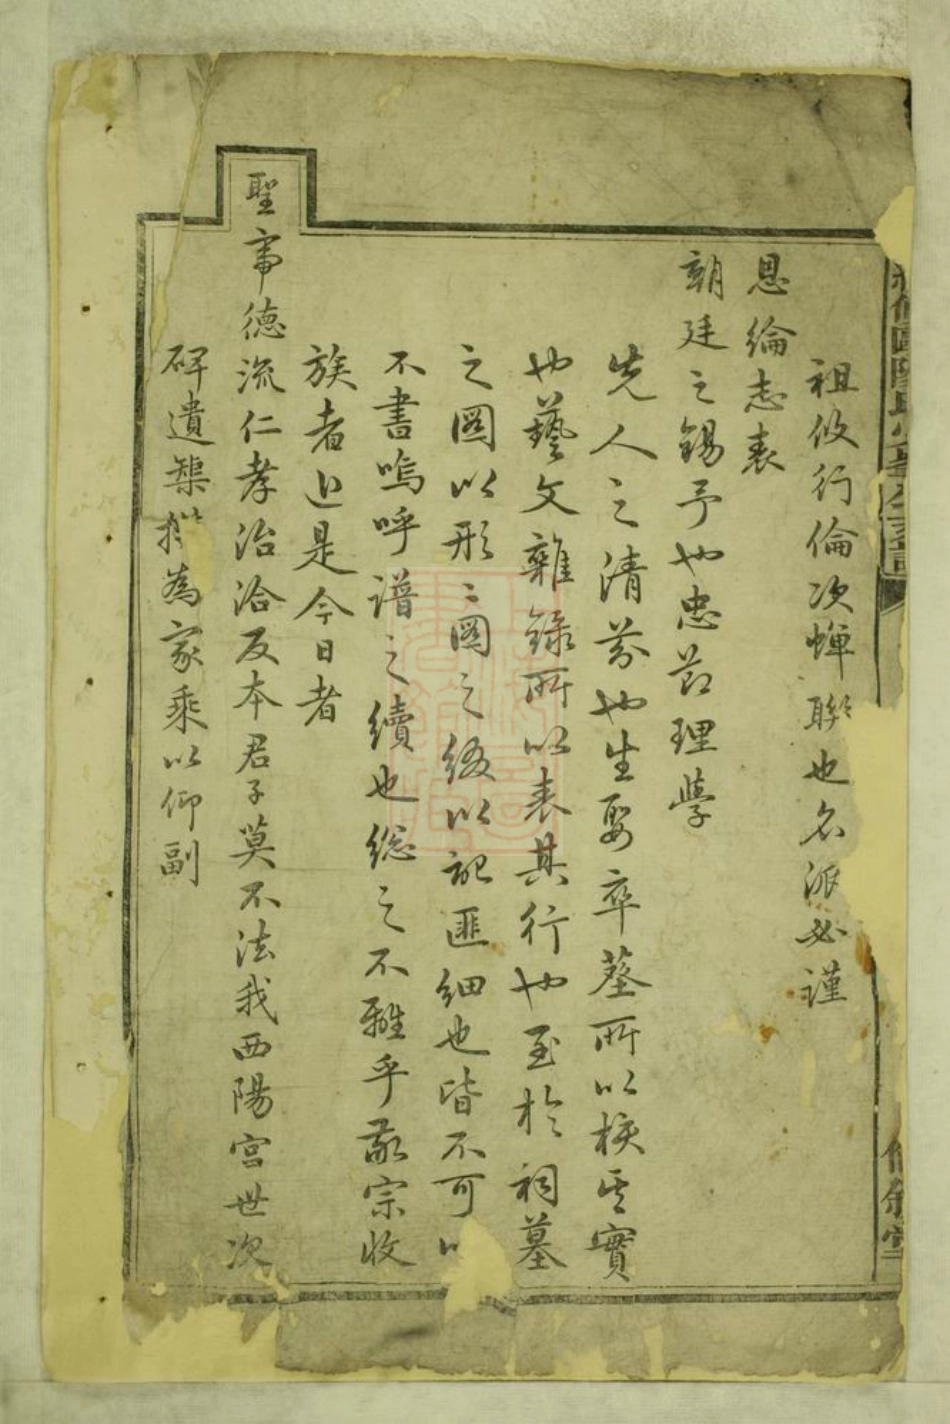 祖攸行倫次蟬聯也名派必謹
恩綸志表
朝廷之錫予也忠節理學
先人之清芬也生娶卒葬所以核其實
也藝文雜錄所以表其行也至於祠墓
之圖以形形圖之後以記匪細也皆不可以
不書嗚呼譜之續也總之不離乎敬宗收
族者近是今日者
聖帝德流仁孝治洽反本君子莫不法我西陽宮世次
碑遺槼為家乘以仰副